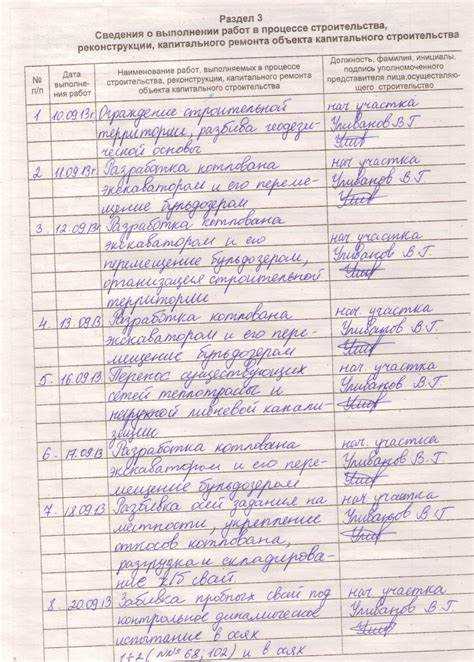 Раздел 3
Сведения о выполнении работ в процессе строительства,
реконструкции, капитального ремонта объекта капитального строительства
№ п/п
Дата выполне-
ния работ
Наименование работ, выполняемых в процессе
строительства, реконструкции, капитального ремонта
объекта капитального строительства
Должность, фамилия, инициалы,
подпись уполномоченного
представителя лица,осуществляю-
щего строительство
1 10.09.13г. Ограждение строительной нач. участка
территории, разбивка геодези- Уливанов В Г
ческой основы
2. 11.09.13г. Разработка котлована нач. участка
экскаватором и его переме- Уливанов В. Г
щение бульдозером
3. 12.09.13г. Разработка котлована нач. участка
экскаватором и его Уливанов В. Г
перемещение бульдозером,
организация строительной
территории
4. 13.09.13 Разработка котлована нач. участка
экскаватором и его пере- Уливанов В. Г.
мещение бульдозером
5. 16.09.13 Перенос существующих нач. участка
сетей теплотрассы и Уливанов В. Г.
наружной ливневой канали-
зации
6. 17.09.13 Разработка котлована нач. участка
экскаватором и его пере- Уливанов В. Г
мещение бульдозером
7. 18.09.13 Разбивка осей здания на нач. участка
местности, укрепление Уливанов В. Г
откосов котлована,
разгрузка и складирова-
ние свай
8. 20.09.13 Забивка пробных свай под нач. участка
контрольное динамическое Уливанов В Г
испытание в осях
(№№ 68, 102) и в осях